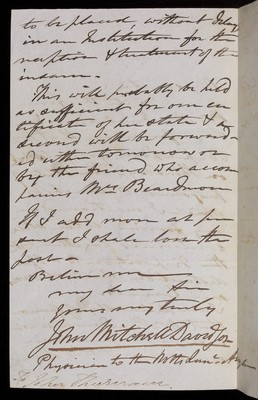 to be placed, without delay
in an Institution for the
reception & treatment of the
insane.
This will probably be held
as sufficient for one cer
tificate of her state & a
second will be forward-
ed either tomorrow or
by the friend who accom
panies Mrs Beardmore
If I add more at pre
sent I shall lose the
post—
Believe me
my dear Sir
yours very truly
John Mitchell Davidson
Physician to the Notts